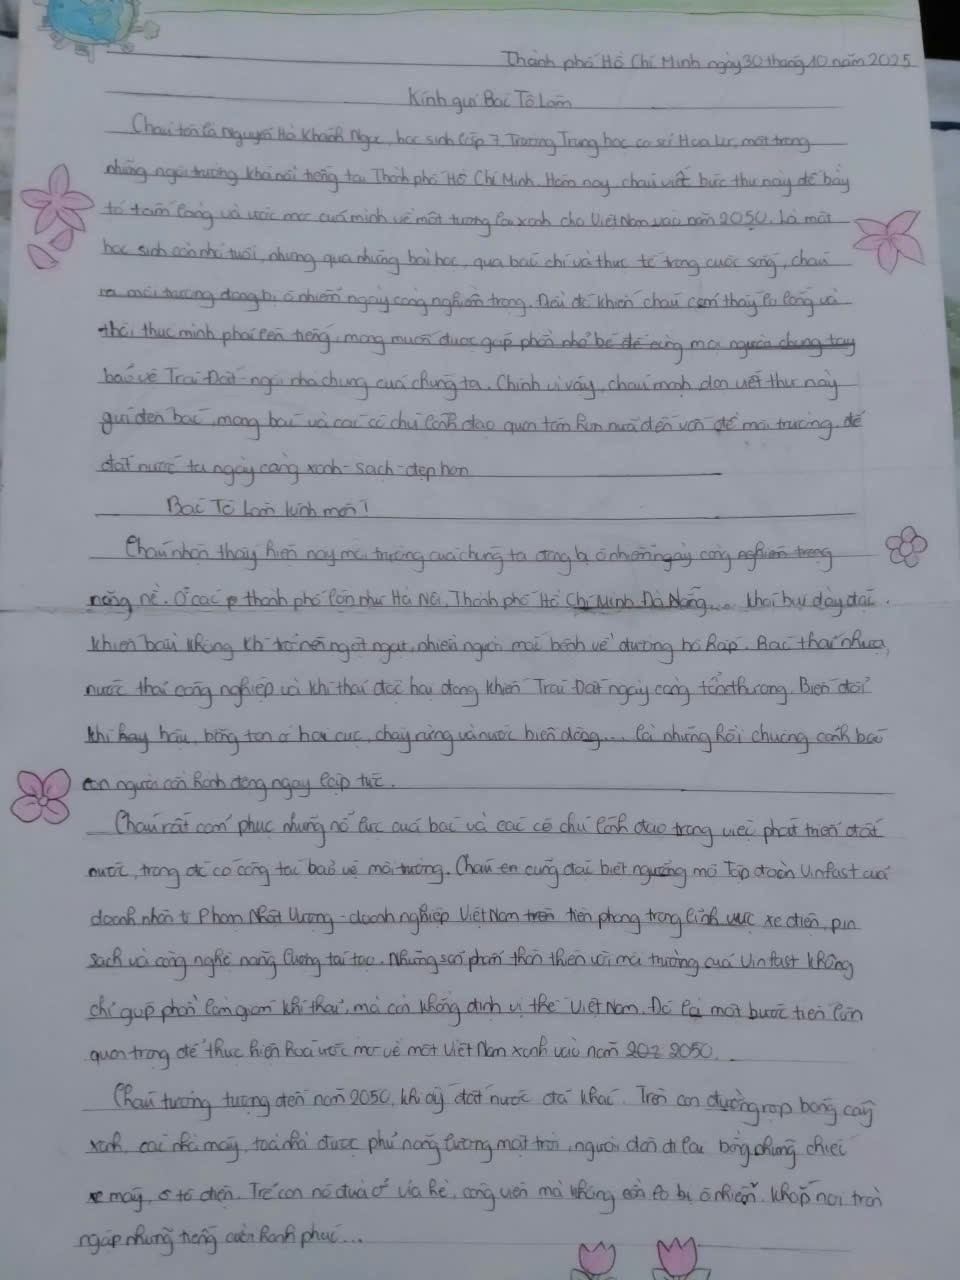 Thành phố Hồ Chí Minh ngày 30 tháng 10 năm 2025
Kính gửi Bác Tô Lâm
Cháu tên là Nguyễn Hà Khánh Ngọc, học sinh lớp 7 Trường Trung học cơ sở Hoa Lư, một trong
những ngôi trường khá nổi tiếng tại Thành phố Hồ Chí Minh. Hôm nay, cháu viết bức thư này để bày
tỏ tấm lòng và ước mơ của mình về một tương lai xanh cho Việt Nam vào năm 2050. Là một
học sinh còn nhỏ tuổi, nhưng qua những bài học, qua báo chí và thực tế trong cuộc sống, cháu
ra môi trường đang bị ô nhiễm ngày càng nghiêm trọng. Điều đó khiến cháu cảm thấy lo lắng và
thôi thúc mình phải lên tiếng, mong muốn được góp phần nhỏ bé để cùng mọi người chung tay
bảo vệ Trái Đất - ngôi nhà chung của chúng ta. Chính vì vậy, cháu mạnh dạn viết thư này
gửi đến bác, mong bác và các cô chú lãnh đạo quan tâm hơn nữa đến vấn đề môi trường, để
đất nước ta ngày càng xanh - sạch - đẹp hơn
Bác Tô Lâm kính mến!
Cháu nhận thấy hiện nay môi trường của chúng ta đang bị ô nhiễm ngày càng nghiêm trọng
nặng nề. Ở các thành phố lớn như Hà Nội, Thành phố Hồ Chí Minh, Đà Nẵng... khói bụi dày đặc
khiến bầu không khí trở nên ngột ngạt, nhiều người mắc bệnh về đường hô hấp. Rác thải nhựa,
nước thải công nghiệp và khí thải độc hại đang khiến Trái Đất ngày càng tổn thương. Biến đổi
khí hậu, băng tan ở hai cực, cháy rừng và nước biển dâng... là những hồi chuông cảnh báo
con người cần hành động ngay lập tức.
Cháu rất cảm phục những nỗ lực của bác và các cô chú lãnh đạo trong việc phát triển đất
nước, trong đó có công tác bảo vệ môi trường. Cháu cũng đặc biệt ngưỡng mộ Tập đoàn Vinfast của
doanh nhân Phạm Nhật Vượng - doanh nghiệp Việt Nam tiên phong trong lĩnh vực xe điện, pin
sạch và công nghệ năng lượng tái tạo. Những sản phẩm thân thiện với môi trường của Vinfast không
chỉ góp phần làm giảm khí thải, mà còn khẳng định vị thế Việt Nam. Đó là một bước tiến lớn
quan trọng để thực hiện hoá ước mơ về một Việt Nam xanh vào năm 202 2050.
Cháu tưởng tượng đến năm 2050, khi ấy đất nước đã khác. Trên con đường rợp bóng cây
xanh, các nhà máy, toà nhà được phủ năng lượng mặt trời, người dân đi lại bằng những chiếc
xe máy, ô tô điện. Trẻ con nô đùa ở vỉa hè, công viên mà không còn lo bị ô nhiễm. Khắp nơi tràn
ngập những tiếng cười hạnh phúc...